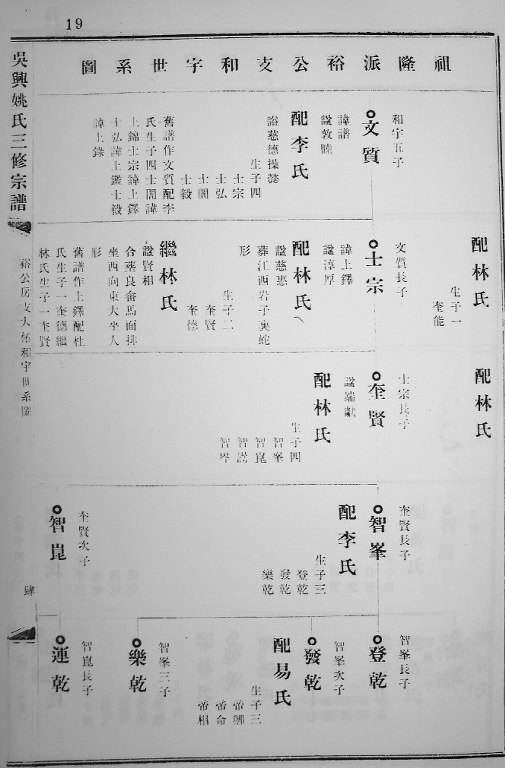 19
祖隆派裕公支和宇世系圖
配林氏
生子一
奎能
配林氏
和宇五子
文質
諱譜
諡敦睦
配李氏
諡慈德操懿
生子四
士宗
士弘
士閣
士毅
舊譜作文質配李
氏生子四士閣諱
上錦士宗諱上鐸
士弘諱上鑑士毅
諱上錄
文質長子
士宗
諱上鐸
諡淳厚
配林氏
諡慈惠
葬江西岩子奧蛇
形
生子二
奎賢
奎德
繼林氏
諡賢相
合葬良畬馬面排
坐西向東大坐人
形
舊譜作上鐸配杜
氏生子一奎德繼
林氏生子一奎賢
士宗長子
奎賢
諡端獻
配林氏
生子四
智峯
智崑
智嵩
智岑
奎賢長子
智峯
配李氏
生子三
登乾
發乾
樂乾
奎賢次子
智崑
智峯長子
登乾
智峯次子
發乾
配易氏
生子三
帝卿
帝命
帝相
智峯三子
樂乾
智崑長子
運乾
吳興姚氏三修宗譜
裕公房支大
和宇世系圖
肆